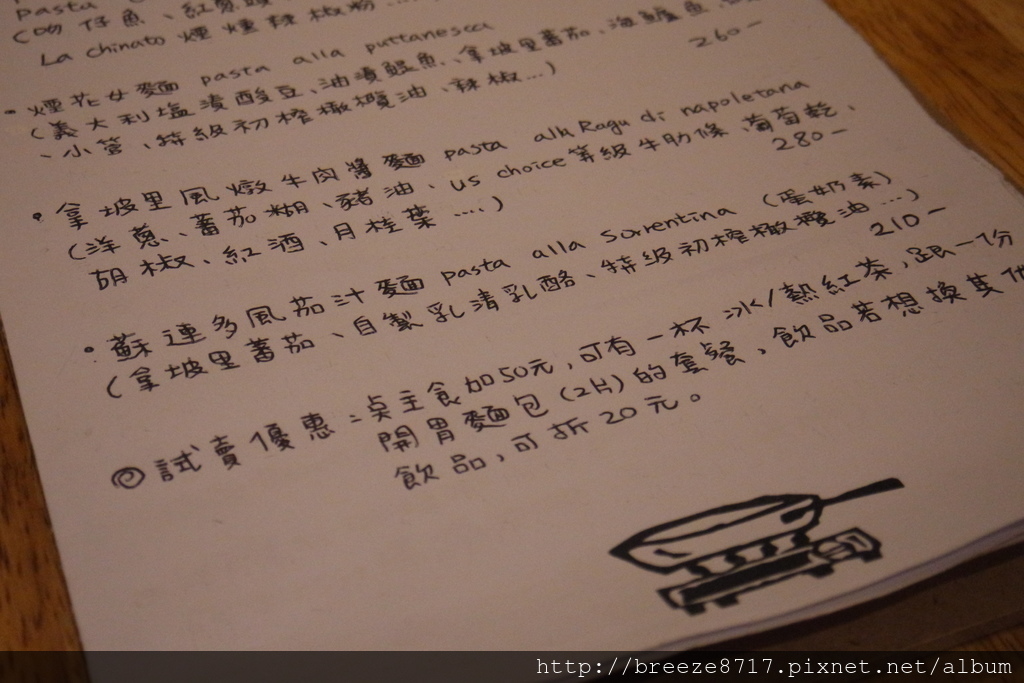 pasta
(吻仔魚、紅蔥頭
La chinato 煙燻辣椒粉....
• 煙花女麵 pasta alla puttanesca
(義大利塩漬酸豆、油漬鯷魚、拿坡里蕃茄、海鱺魚、
、小管、特級初榨橄欖油、辣椒...) 260-
• 拿坡里風燉牛肉醬麵 pasta alla Ragu di napoletana
(洋蔥、蕃茄糊、豬油、us choice等級牛肋條、葡萄乾、
胡椒、紅酒、月桂葉....) 280-
• 蘇連多風茄汁麵 pasta alla Sorrentina (蛋奶素)
(拿坡里蕃茄、自製乳清乳酪、特級初榨橄欖油...) 210-
◎試賣優惠:桌主食加50元,可有一杯冰/熱紅茶,跟一份
開胃麵包(2片)的套餐,飲品若想換其他
飲品,可折20元。
http://breeze8717.pixnet.net/album